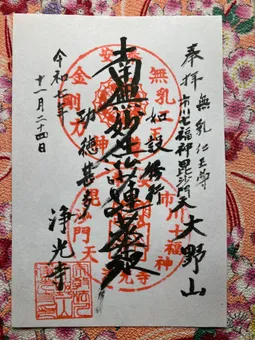 奉拝
無乳仁王尊
市川七福神毘沙門天
大野山
如説修行
南無妙法蓮華経
功徳甚多
浄光寺
令和七年
十一月二十四日
無乳仁王尊
金剛力
毘沙門天
市川七福神